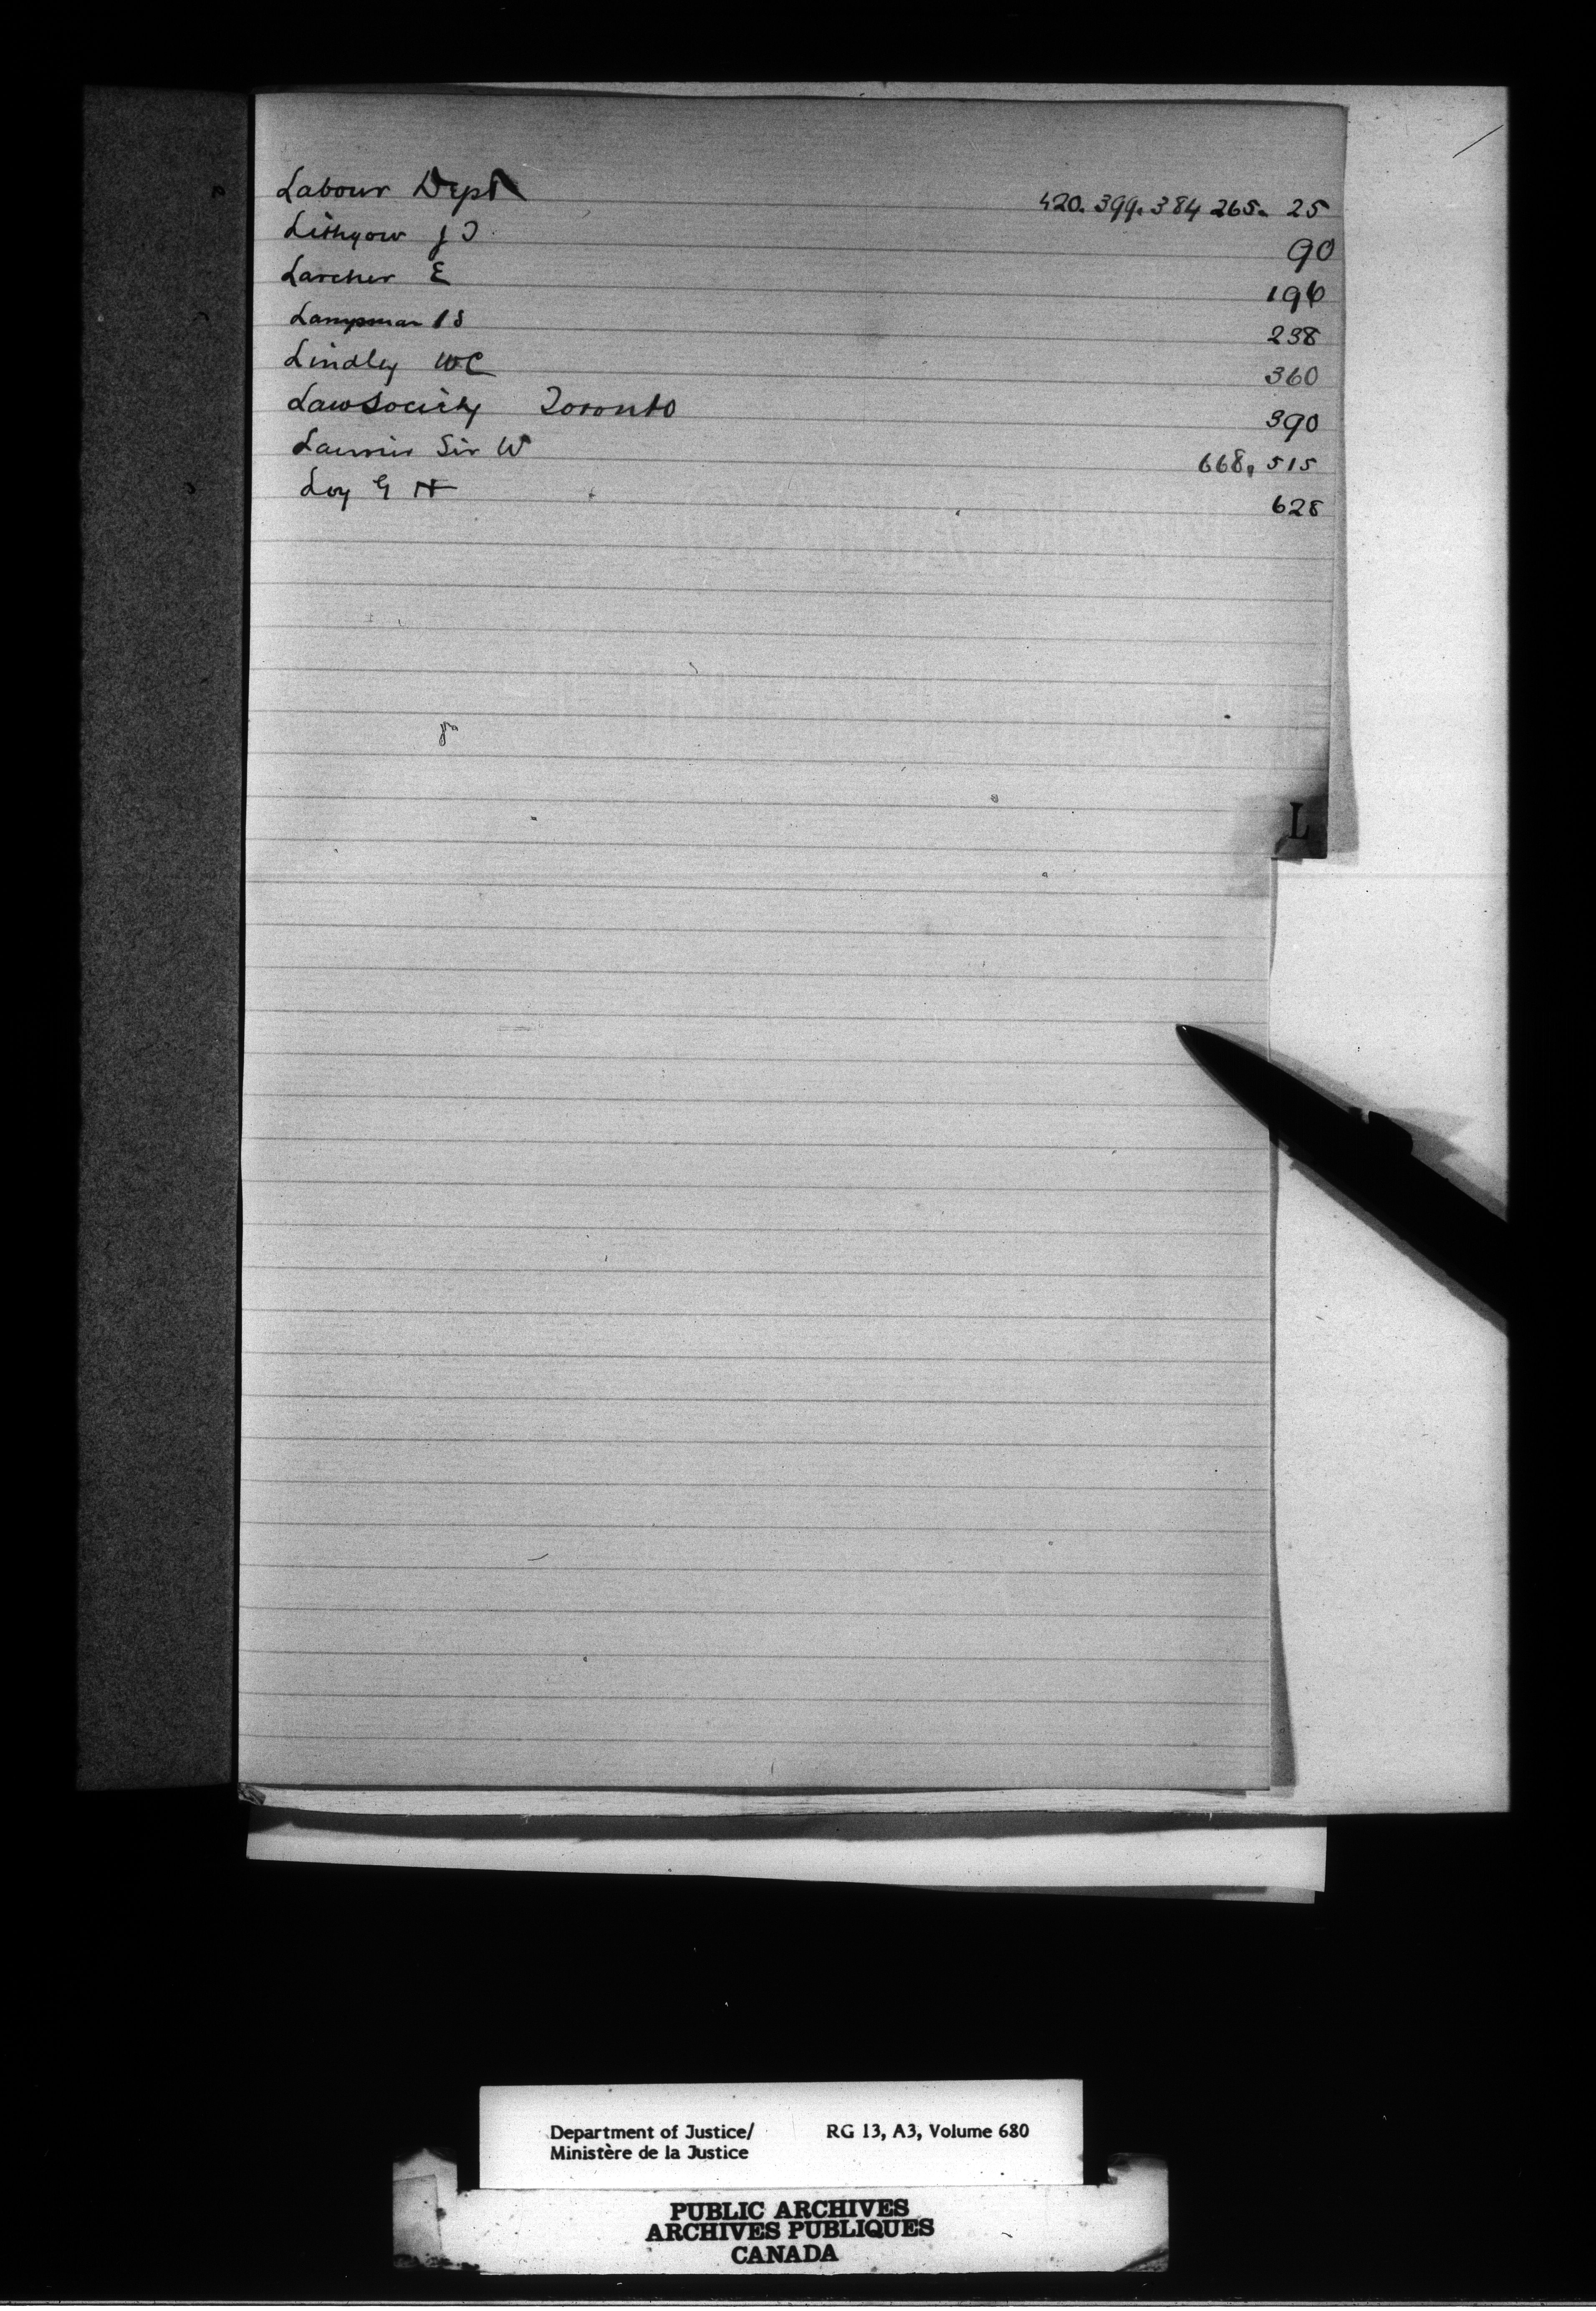 Labour Dept 420. 399. 384 265. 25
Lithgow J J 90
Larcher E 196
Lampman P S 238
Lindley WC 360
Law Society Toronto 390
Laurier Sir W 668, 515
Loy G H 628
L
Department of Justice/ RG 13, A3, Volume 680
Ministère de la Justice
PUBLIC ARCHIVES
ARCHIVES PUBLIQUES
CANADA